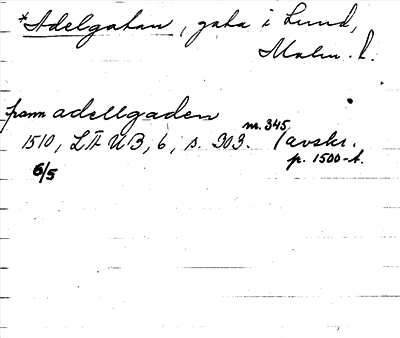 *Adelgatan, gata i Lund,
Malm. l.
fram adellgaden
nr. 345
1510, LÄUB, 6, s. 303. (avskr.
p. 1500-t.
6/5